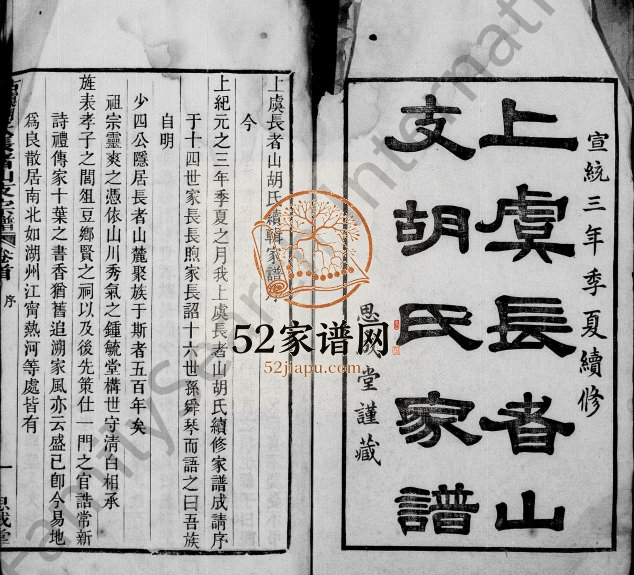 宣統三年季夏續修
上虞長者山
支胡氏家譜
思成堂謹藏
上虞長者山胡氏續輯家譜序
今
上紀元之三年季夏之月我上虞長者山胡氏續修家譜成請序
于十四世家長長煦家長詔十六世孫舜琴而語之曰吾族
自明
少四公隱居長者山麓聚族于斯者五百年矣
祖宗靈爽之憑依山川秀氣之鍾毓堂構世守清白相承
旌表孝子之閭俎豆鄉賢之祠以及後先策仕一門之官誥常新
詩禮傳家十葉之書香猶舊追溯家風亦云盛已卽今易地
爲良散居南北如湖州江甯熱河等處皆有
長者山支宗譜
卷首
序
一
思成堂
52家谱网
52jiapu.com
FamilySearch International